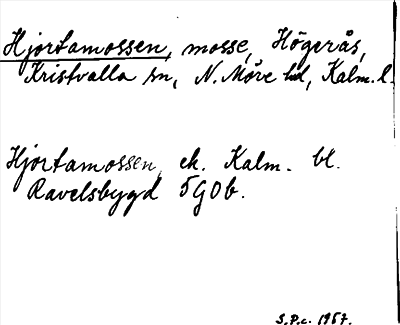 Hjortamossen, mosse, Högerås,
Kristvalla sn, N. Möre hd, Kalm. l.
Hjortamossen, ek. Kalm. bl.
Ravelsbygd 5G0b.
S.P.c. 1957.